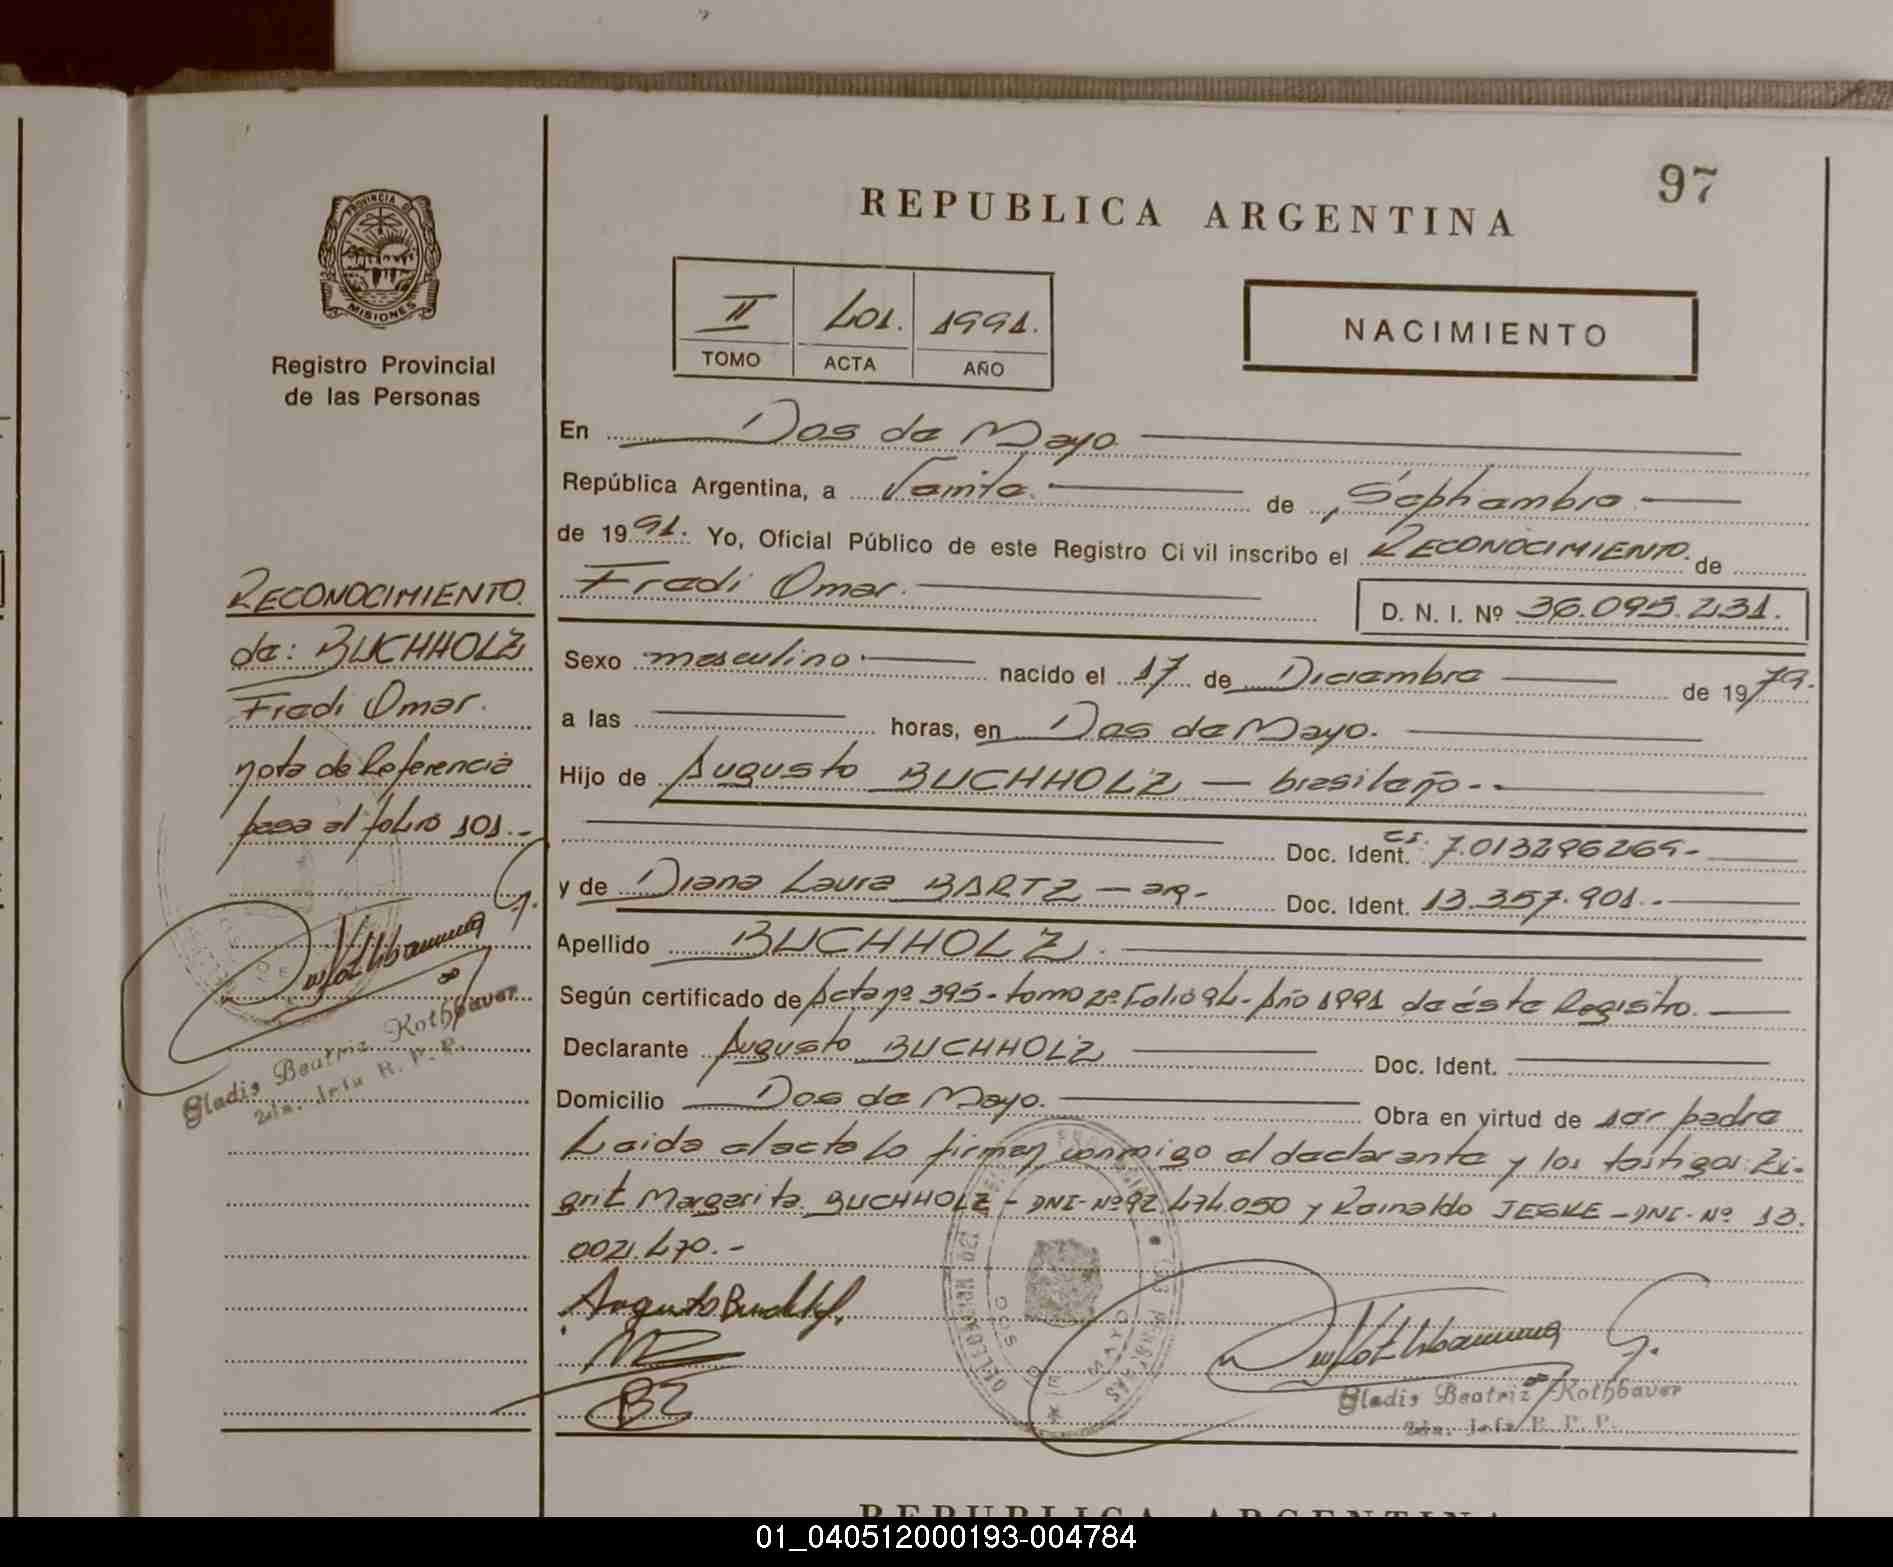 97
REPUBLICA ARGENTINA
PROVINCIA DE
MISIONES
Registro Provincial
de las Personas
II 401. 1991.
TOMO ACTA AÑO
NACIMIENTO
En Dos de Mayo
República Argentina, a Veinte. de Septiembre
de 1991. Yo, Oficial Público de este Registro Civil inscribo el RECONOCIMIENTO. de
Fredi Omar. D. N. I. Nº 36.095.231.
Sexo masculino nacido el 17 de Diciembre de 1979.
a las horas, en Dos de Mayo.
Hijo de Augusto BUCHHOLZ — brasileño.-
Doc. Ident. CI. 7.013296269-
y de Diana Laura BARTZ — arg- Doc. Ident. 13.357.901.-
Apellido BUCHHOLZ.
Según certificado de Acta nº 395- tomo 2º Folio 94- Año 1991 de éste Registro.
Declarante Augusto BUCHHOLZ Doc. Ident.
Domicilio Dos de Mayo. Obra en virtud de ser padre
Leida el acta lo firman conmigo el declarante y los testigos: Zi-
grit Margarita BUCHHOLZ - DNI-Nº 92.474.050 y Reinaldo JESKE - DNI-Nº 13.
0021.470.-
RECONOCIMIENTO.
de: BUCHHOLZ
Fredi Omar.
nota de Referencia
pasa al folio 101.-
Gladis Beatriz Kothbaver
2da. Jefa R. P. P.
DOS DE MAYO
Gladis Beatriz Kothbaver
2da. Jefa R. P. P.
REPUBLICA ARGENTINA
01_040512000193-004784